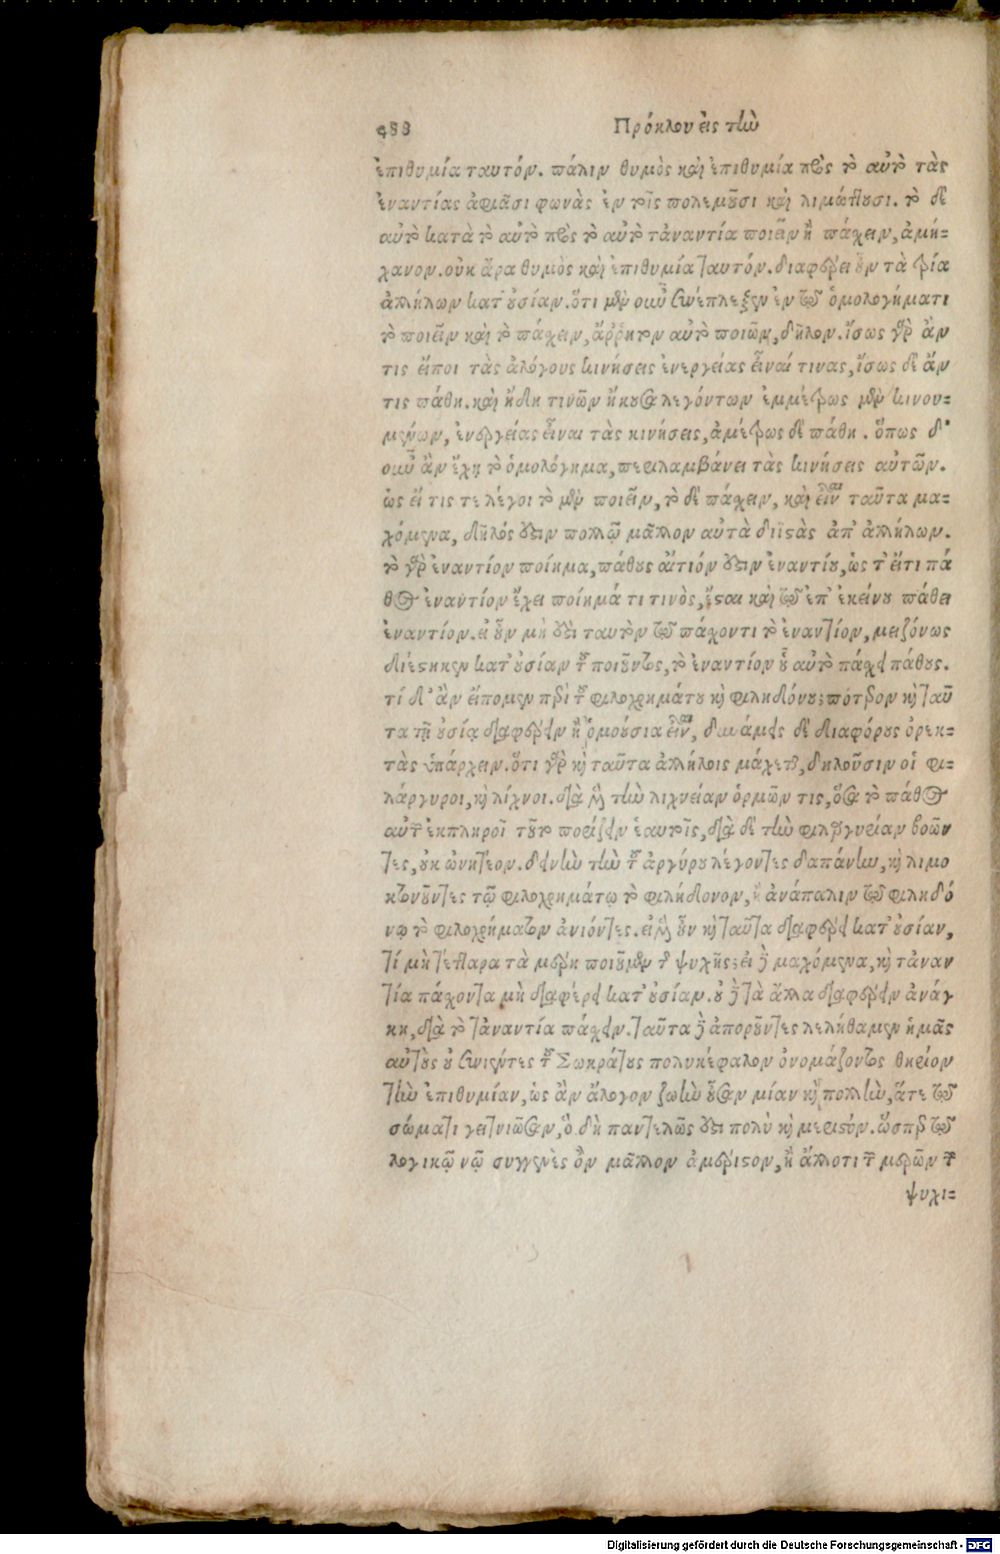 488 Πρόκλου εἰς τὴν
ἐπιθυμία ταυτόν. πάλιν θυμὸς καὶ ἐπιθυμία πρὸς τὸ αὐτὸ τὰς
ἐναντίας ἀφιᾶσι φωνὰς ἐν τοῖς πολεμοῦσι καὶ λιμώττουσι. τὸ δὲ
αὐτὸ κατὰ τὸ αὐτὸ πρὸς τὸ αὐτὸ τἀναντία ποιεῖν ἢ πάχειν, ἀμή-
χανον. οὐκ ἄρα θυμὸς καὶ ἐπιθυμία ταυτόν. διαφέρει οὖν τὰ τρία
ἀλλήλων κατ' οὐσίαν. ὅτι μὲν οὖν συνέπλεξεν ἐν τῷ ὁμολογήματι
τὸ ποιεῖν καὶ τὸ πάχειν, ἄῤῥητον αὐτὸ ποιῶν, δῆλον. ἴσως γὰρ ἄν
τις εἴποι τὰς ἀλόγους κινήσεις ἐνεργείας εἶναί τινας, ἴσως δὲ ἄν
τις πάθη. καὶ ἤδη τινῶν ἤκουσα λεγόντων ἐμμέτρως μὲν κινου-
μένων, ἐνεργείας εἶναι τὰς κινήσεις, ἀμέτρως δὲ πάθη. ὅπως δ'
οὖν ἂν ἔχῃ τὸ ὁμολόγημα, περιλαμβάνει τὰς κινήσεις αὐτῶν.
ὡς εἴ τις τε λέγοι τὸ μὲν ποιεῖν, τὸ δὲ πάχειν, καὶ εἶναι ταῦτα μα-
χόμενα, δῆλός ἐστιν πολλῷ μᾶλλον αὐτὰ διϊστὰς ἀπ' ἀλλήλων.
τὸ γὰρ ἐναντίον ποίημα, πάθους αἴτιόν ἐστιν ἐναντίου, ὡς τ' εἴ τι πά
θος ἐναντίον ἔχει ποίημά τι τινὸς, ἔσται καὶ τῷ ἐπ' ἐκείνου πάθει
ἐναντίον. εἰ οὖν μή ἐστι ταυτὸν τῷ πάχοντι τὸ ἐναντίον, μειζόνως
διέστηκεν κατ' οὐσίαν τοῦ ποιοῦντος, τὸ ἐναντίον οὗ αὐτὸ πάχει πάθους.
τί δ' ἂν εἴπομεν περὶ τοῦ φιλοχρημάτου καὶ φιληδόνου; πότερον καὶ ταῦ
τα τῇ οὐσίᾳ διαφέρειν ἢ ὁμοούσια εἶναι, δυνάμεις δὲ διαφόρους ὀρεκ-
τὰς ὑπάρχειν. ὅτι γὰρ καὶ ταῦτα ἀλλήλοις μάχεται, δηλοῦσιν οἱ φι-
λάργυροι, καὶ λίχνοι. διὰ μὲν τὴν λιχνείαν ὁρμῶν τις, ὅσα τὸ πάθος
αὐτοῦ ἐκπληροῖ τοῦτο πορίζειν ἑαυτοῖς, διὰ δὲ τὴν φιλαργυρίαν βοῶν
τες, οὐκ ὠνητέον. δεινὴν τὴν τοῦ ἀργύρου λέγοντες δαπάνην, καὶ λιμο
κτονοῦντες τῷ φιλοχρημάτῳ τὸ φιλήδονον, ἢ ἀνάπαλιν τῷ φιληδό
νῳ τὸ φιλοχρήματον ἀνιόντες. εἰ μὲν οὖν καὶ ταῦτα διαφέρει κατ' οὐσίαν,
τί μὴ τέτταρα τὰ μέρη ποιοῦμεν τῆς ψυχῆς; εἰ δὲ μαχόμενα, καὶ τἀναν
τία πάχοντα μὴ διαφέρει κατ' οὐσίαν. οὐδὲ τὰ ἄλλα διαφέρειν ἀνάγ
κη, διὰ τὸ τἀναντία πάχειν. ταῦτα δὲ ἀποροῦντες λελήθαμεν ἡμᾶς
αὐτοὺς οὐ συνιέντες τοῦ Σωκράτους πολυκέφαλον ὀνομάζοντος θηρίον
τὴν ἐπιθυμίαν, ὡς ἂν ἄλογον ζωὴν οὖσαν μίαν καὶ πολλὴν, ἅτε τῷ
σώματι γειτνιῶσαν, ὃ δὴ παντελῶς ἐστι πολὺ καὶ μεριστόν. ὥσπερ τῷ
λογικῷ νῷ συγγενὲς ὂν μᾶλλον ἀμέριστον, ἢ ἄλλο τι τῶν μερῶν τῶν
ψυχι-
Digitalisierung gefördert durch die Deutsche Forschungsgemeinschaft - DFG